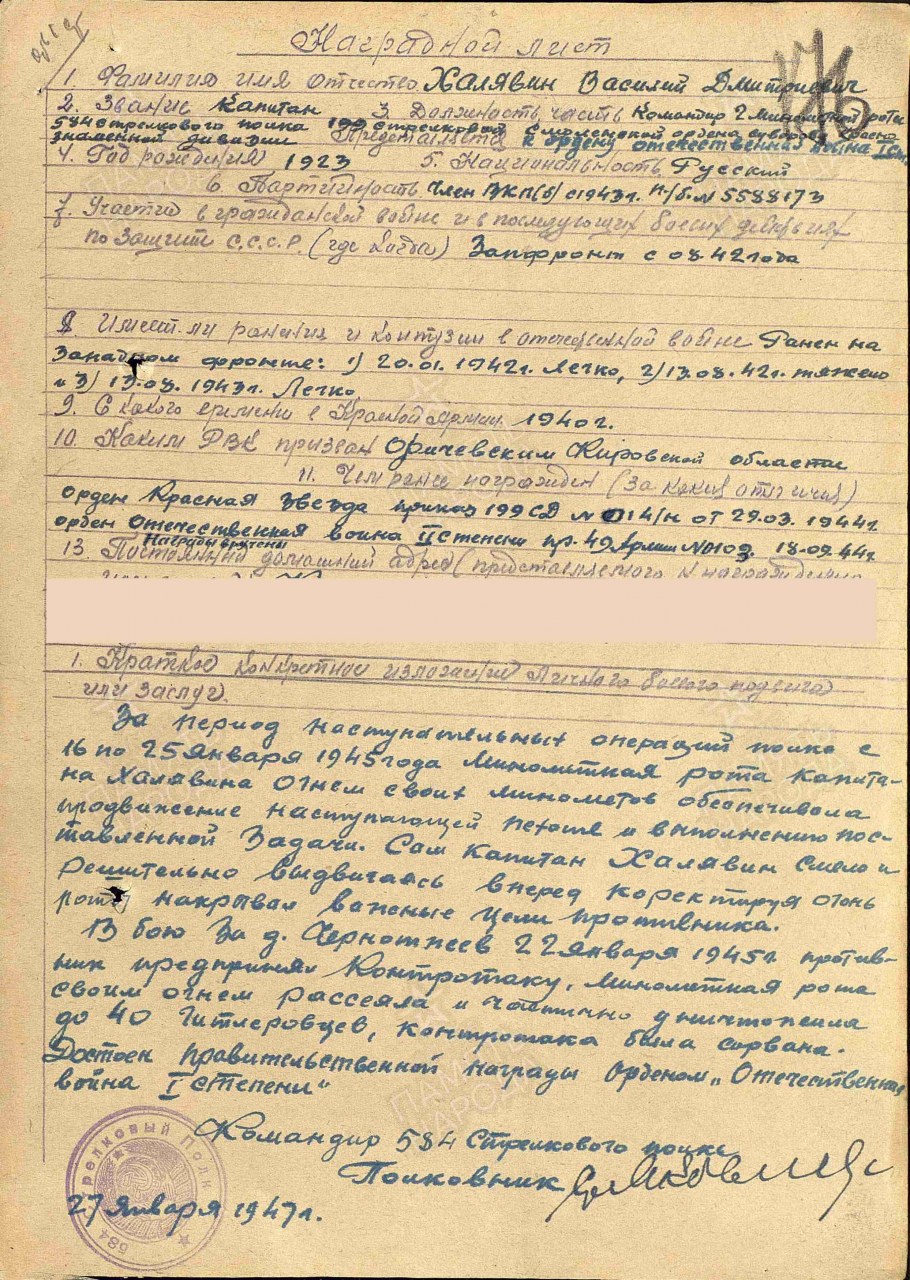 Наградной лист
1. Фамилия имя отчество Халявин Василий Дмитриевич
2. Звание Капитан 3. Должность, часть Командир 2 Минометной роты
584 стрелкового полка 199 стрелковой Смоленской ордена Суворова Красно
знаменной дивизии Представляется к ордену отечественная война I ст.
4. Год рождения 1923 5. Национальность Русский
6. Партийность Член ВКП(б) с 1943г. п/б. № 5588173
7. Участие в гражданской войне и в последующих боевых действиях
по защите С.С.С.Р. (где когда) Запфронт с 08.42 года
8. Имеет ли ранения и контузии в отечественной войне Ранен на
Западном фронте: 1) 20.01.1942г. Легко, 2) 13.08.42г. тяжело
и 3) 13.08.1943г. Легко
9. С какого времени в Красной Армии. 1940г.
10. Каким РВК призван Оричевским Кировской области
11. Чем ранее награжден (за какие отличия)
орден Красная Звезда приказ 199 СД № 014/н от 29.03.1944г.
орден Отечественная война II степени пр. 49 Армии № 0103. 18.09.44г.
Награды вручены
13. Постоянный домашний адрес (представляемого к награждению
1. Краткое конкретное изложение личного боевого подвига
или заслуг.
За период наступательных операций полка с
16 по 25 Января 1945 года Минометная рота капита-
на Халявина огнем своих минометов обеспечивала
продвижение наступающей пехоте и выполнению пос-
тавленной Задачи. Сам капитан Халявин смело и
решительно выдвигаясь вперед коректируя огонь
роты накрывал важные цели противника.
В бою За д. Чернотшеев 22 Января 1945г. против-
ник предпринял Контротаку, минометная рота
своим огнем рассеяла и частично уничтожила
до 40 Гитлеровцев, контротака была сорвана.
Достоен правительственной награды Орденом „Отечественная
война I степени"
Командир 584 Стрелкового полка
Полковник
27 Января 1947г.
Стрелковый Полк
584
ПАМЯТЬ
НАРОДА